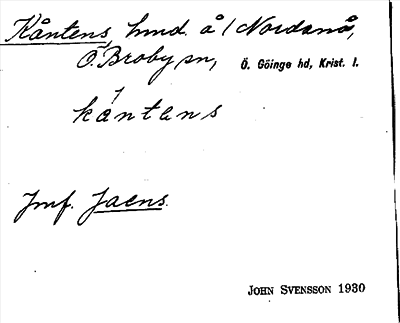 Kåntens, hmd. å / Nordanå,
Ö. Broby sn, Ö. Göinge hd, Krist. l.
kántens
Jmf. Jaens.
JOHN SVENSSON 1930